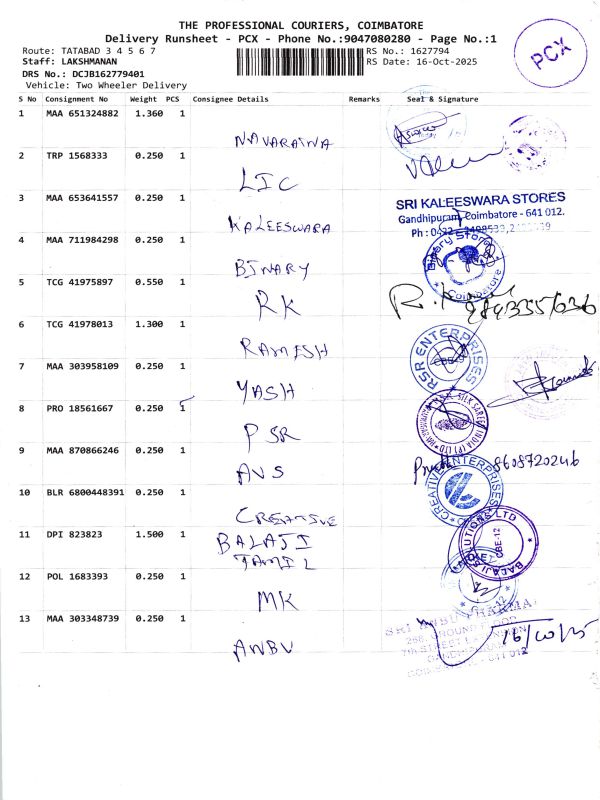 THE PROFESSIONAL COURIERS, COIMBATORE
Delivery Runsheet - PCX - Phone No.:9047080280 - Page No.:1
PCX
Route: TATABAD 3 4 5 6 7
RS No.: 1627794
Staff: LAKSHMANAN
RS Date: 16-Oct-2025
DRS No.: DCJB162779401
Vehicle: Two Wheeler Delivery
S No Consignment No Weight PCS Consignee Details Remarks Seal & Signature
1 MAA 651324882 1.360 1
NAVARATNA
2 TRP 1568333 0.250 1
LIC
3 MAA 653641557 0.250 1
SRI KALEESWARA STORES
Gandhipuram, Coimbatore - 641 012.
KALEESWARA
4 MAA 711984298 0.250 1
Binary Store
Coimbatore
BINARY
5 TCG 41975897 0.550 1
RK
6 TCG 41978013 1.300 1
RSR ENTERPRISES
RAMESH
7 MAA 303958109 0.250 1
YASH
8 PRO 18561667 0.250 1
SILK SAREE INDIA (P) LTD
PSR
9 MAA 870866246 0.250 1
8608720246
AVS
10 BLR 6800448391 0.250 1
CREATIVE ENTERPRISES
CREATIVE
11 DPI 823823 1.500 1
BALAJI SOLUTIONS LTD
CBE-12
BALAJI
TAMIL
12 POL 1683393 0.250 1
MK
13 MAA 303348739 0.250 1
SRI ANBU PHARMA
16/10/25
ANBU